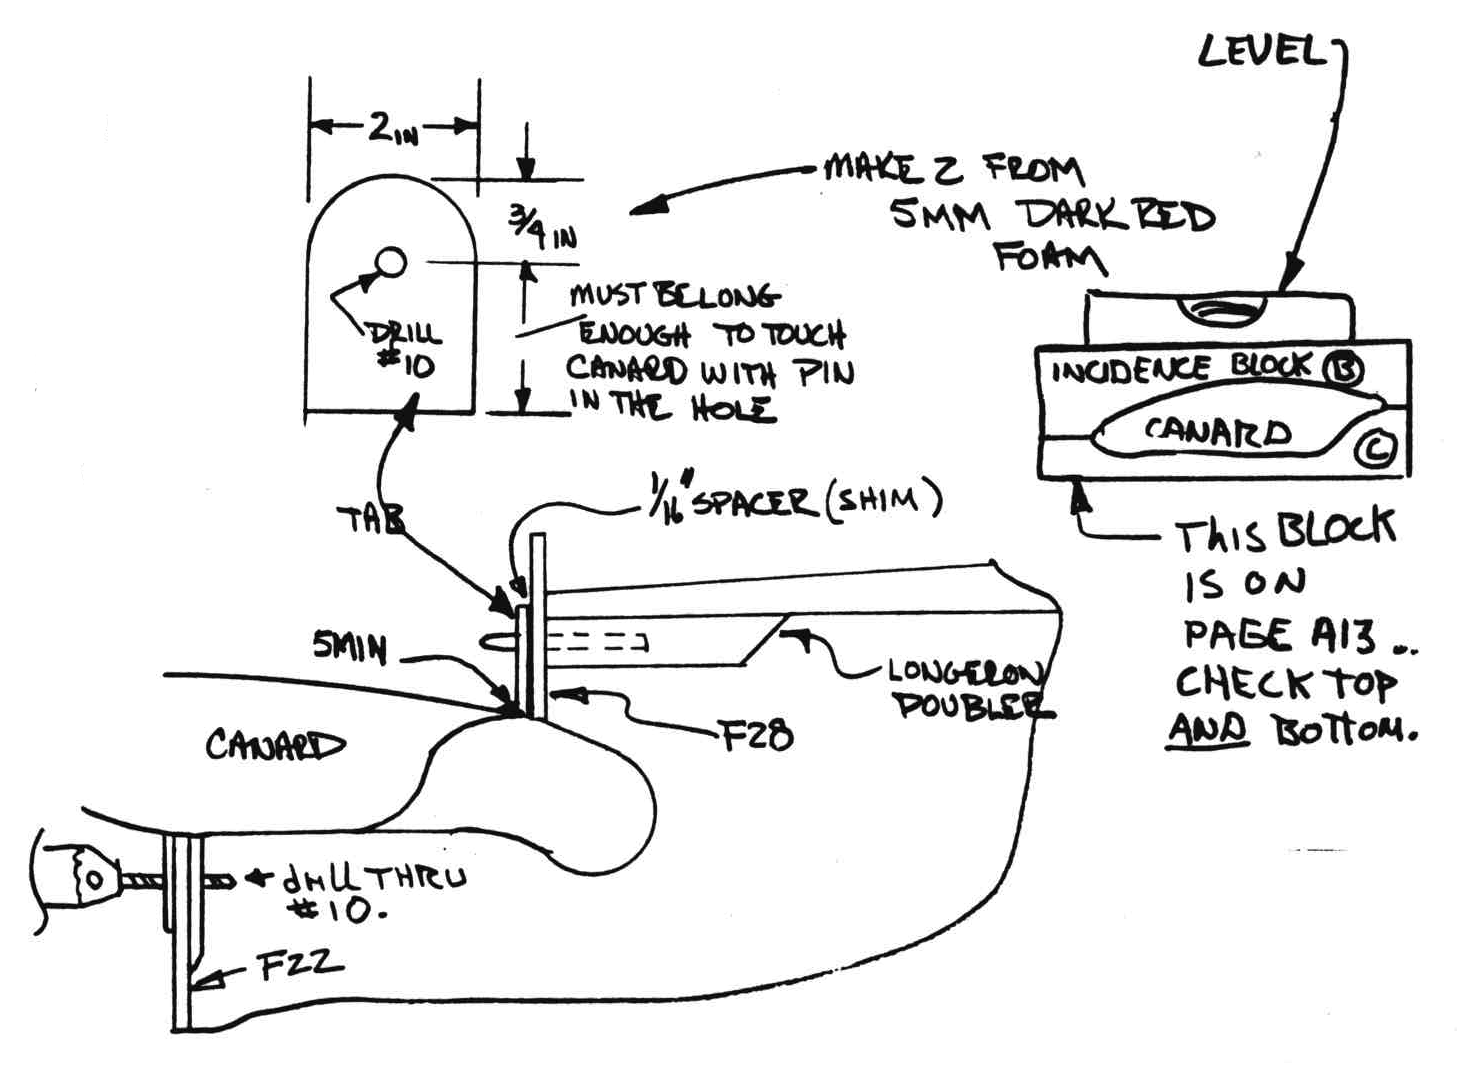 LEVEL
2 IN
3/4 IN
MAKE 2 FROM
5MM DARK RED
FOAM
DRILL
#10
MUST BE LONG
ENOUGH TO TOUCH
CANARD WITH PIN
IN THE HOLE
INCIDENCE BLOCK B
CANARD
C
TAB
1/16" SPACER (SHIM)
THIS BLOCK
IS ON
PAGE A13...
CHECK TOP
AND BOTTOM.
5MIN
LONGERON
DOUBLER
F28
CANARD
drill THRU
#10.
F22